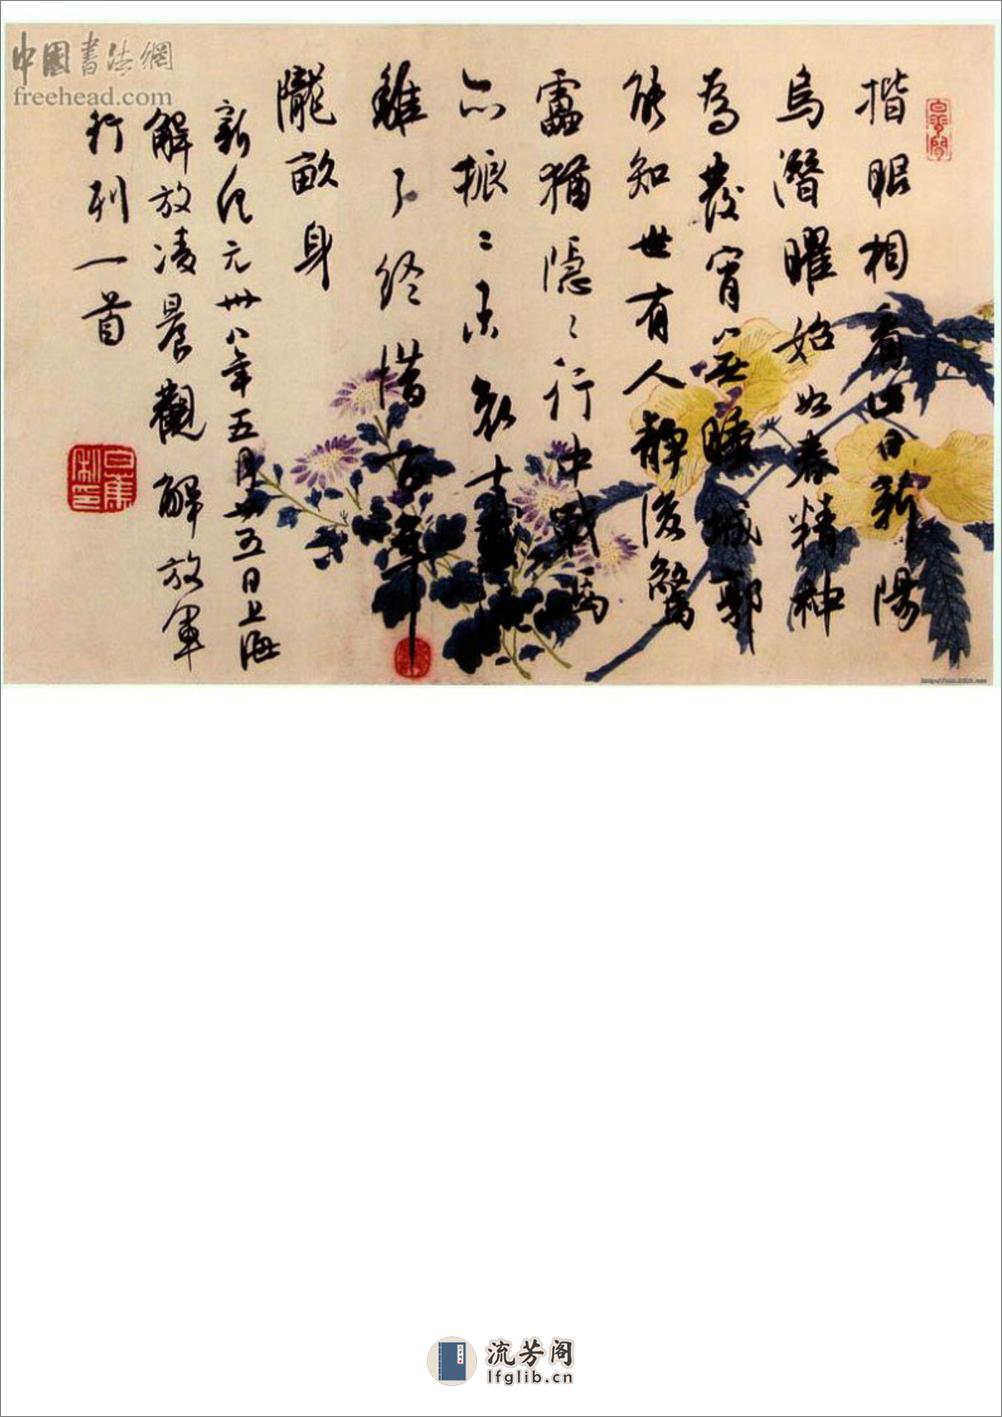 中國書法網
freehead.com
揩眼相看此日新陽
烏潛曜始如春精神
為發宵無睡城郭
能知世有人靜後驚
靁猶隱〻行中戰馬
亦振〻哀十載
難了終惜百年
隴畝身
新紀元卅八年五月廿五日上海
解放凌晨觀解放軍
行列一首
流芳阁
lfglib.cn